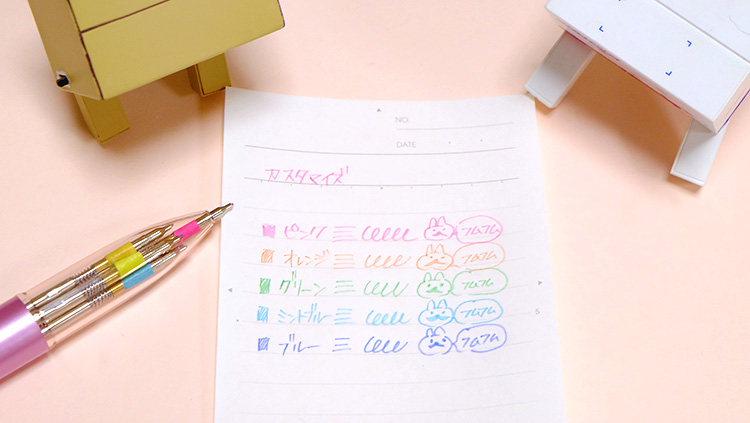 NO.
DATE
カスタマイズ
ピンク フムフム
オレンジ フムフム
グリーン フムフム
ミントブルー フムフム
ブルー フムフム
5